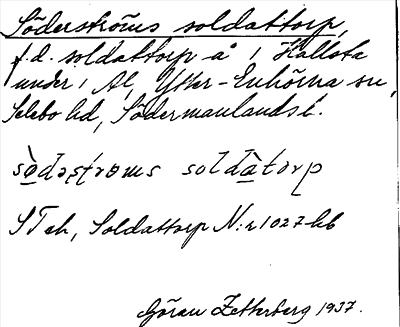 Söderströms soldattorp,
f.d. soldattorp å 1 Hallsta
under 1 Al, Ytter-Enhörna sn,
Selebo hd, Södermanlands l.
sö̀dəştrɵms soldàtɔrp
STeh, Soldattorp N:r 1027 hb
Göran Zetterberg 1937.